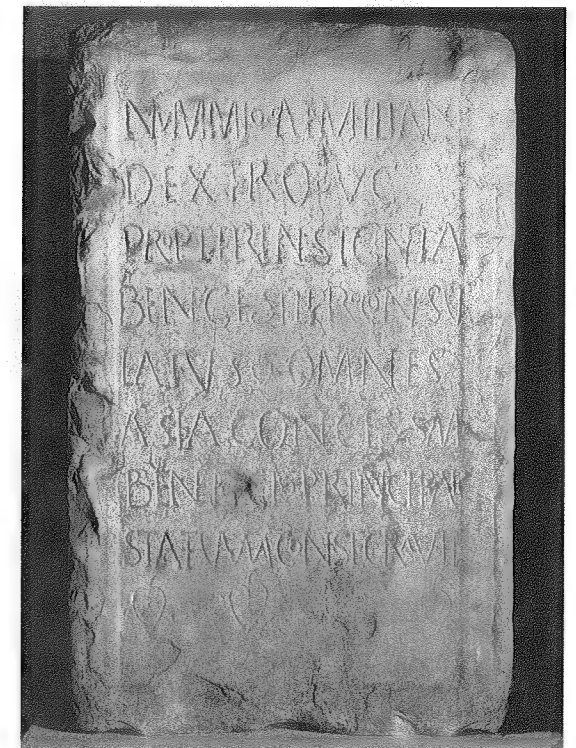 NVMMIO AEMILIAN
DEXTRO VC
PROPTER INSIGNIA
BENE GESTI PROCONSV
LATVS OMNES
ASIA CONCESSAM
BENEFICIO PRINCIPAL
STATVAM CONSECRAVIT